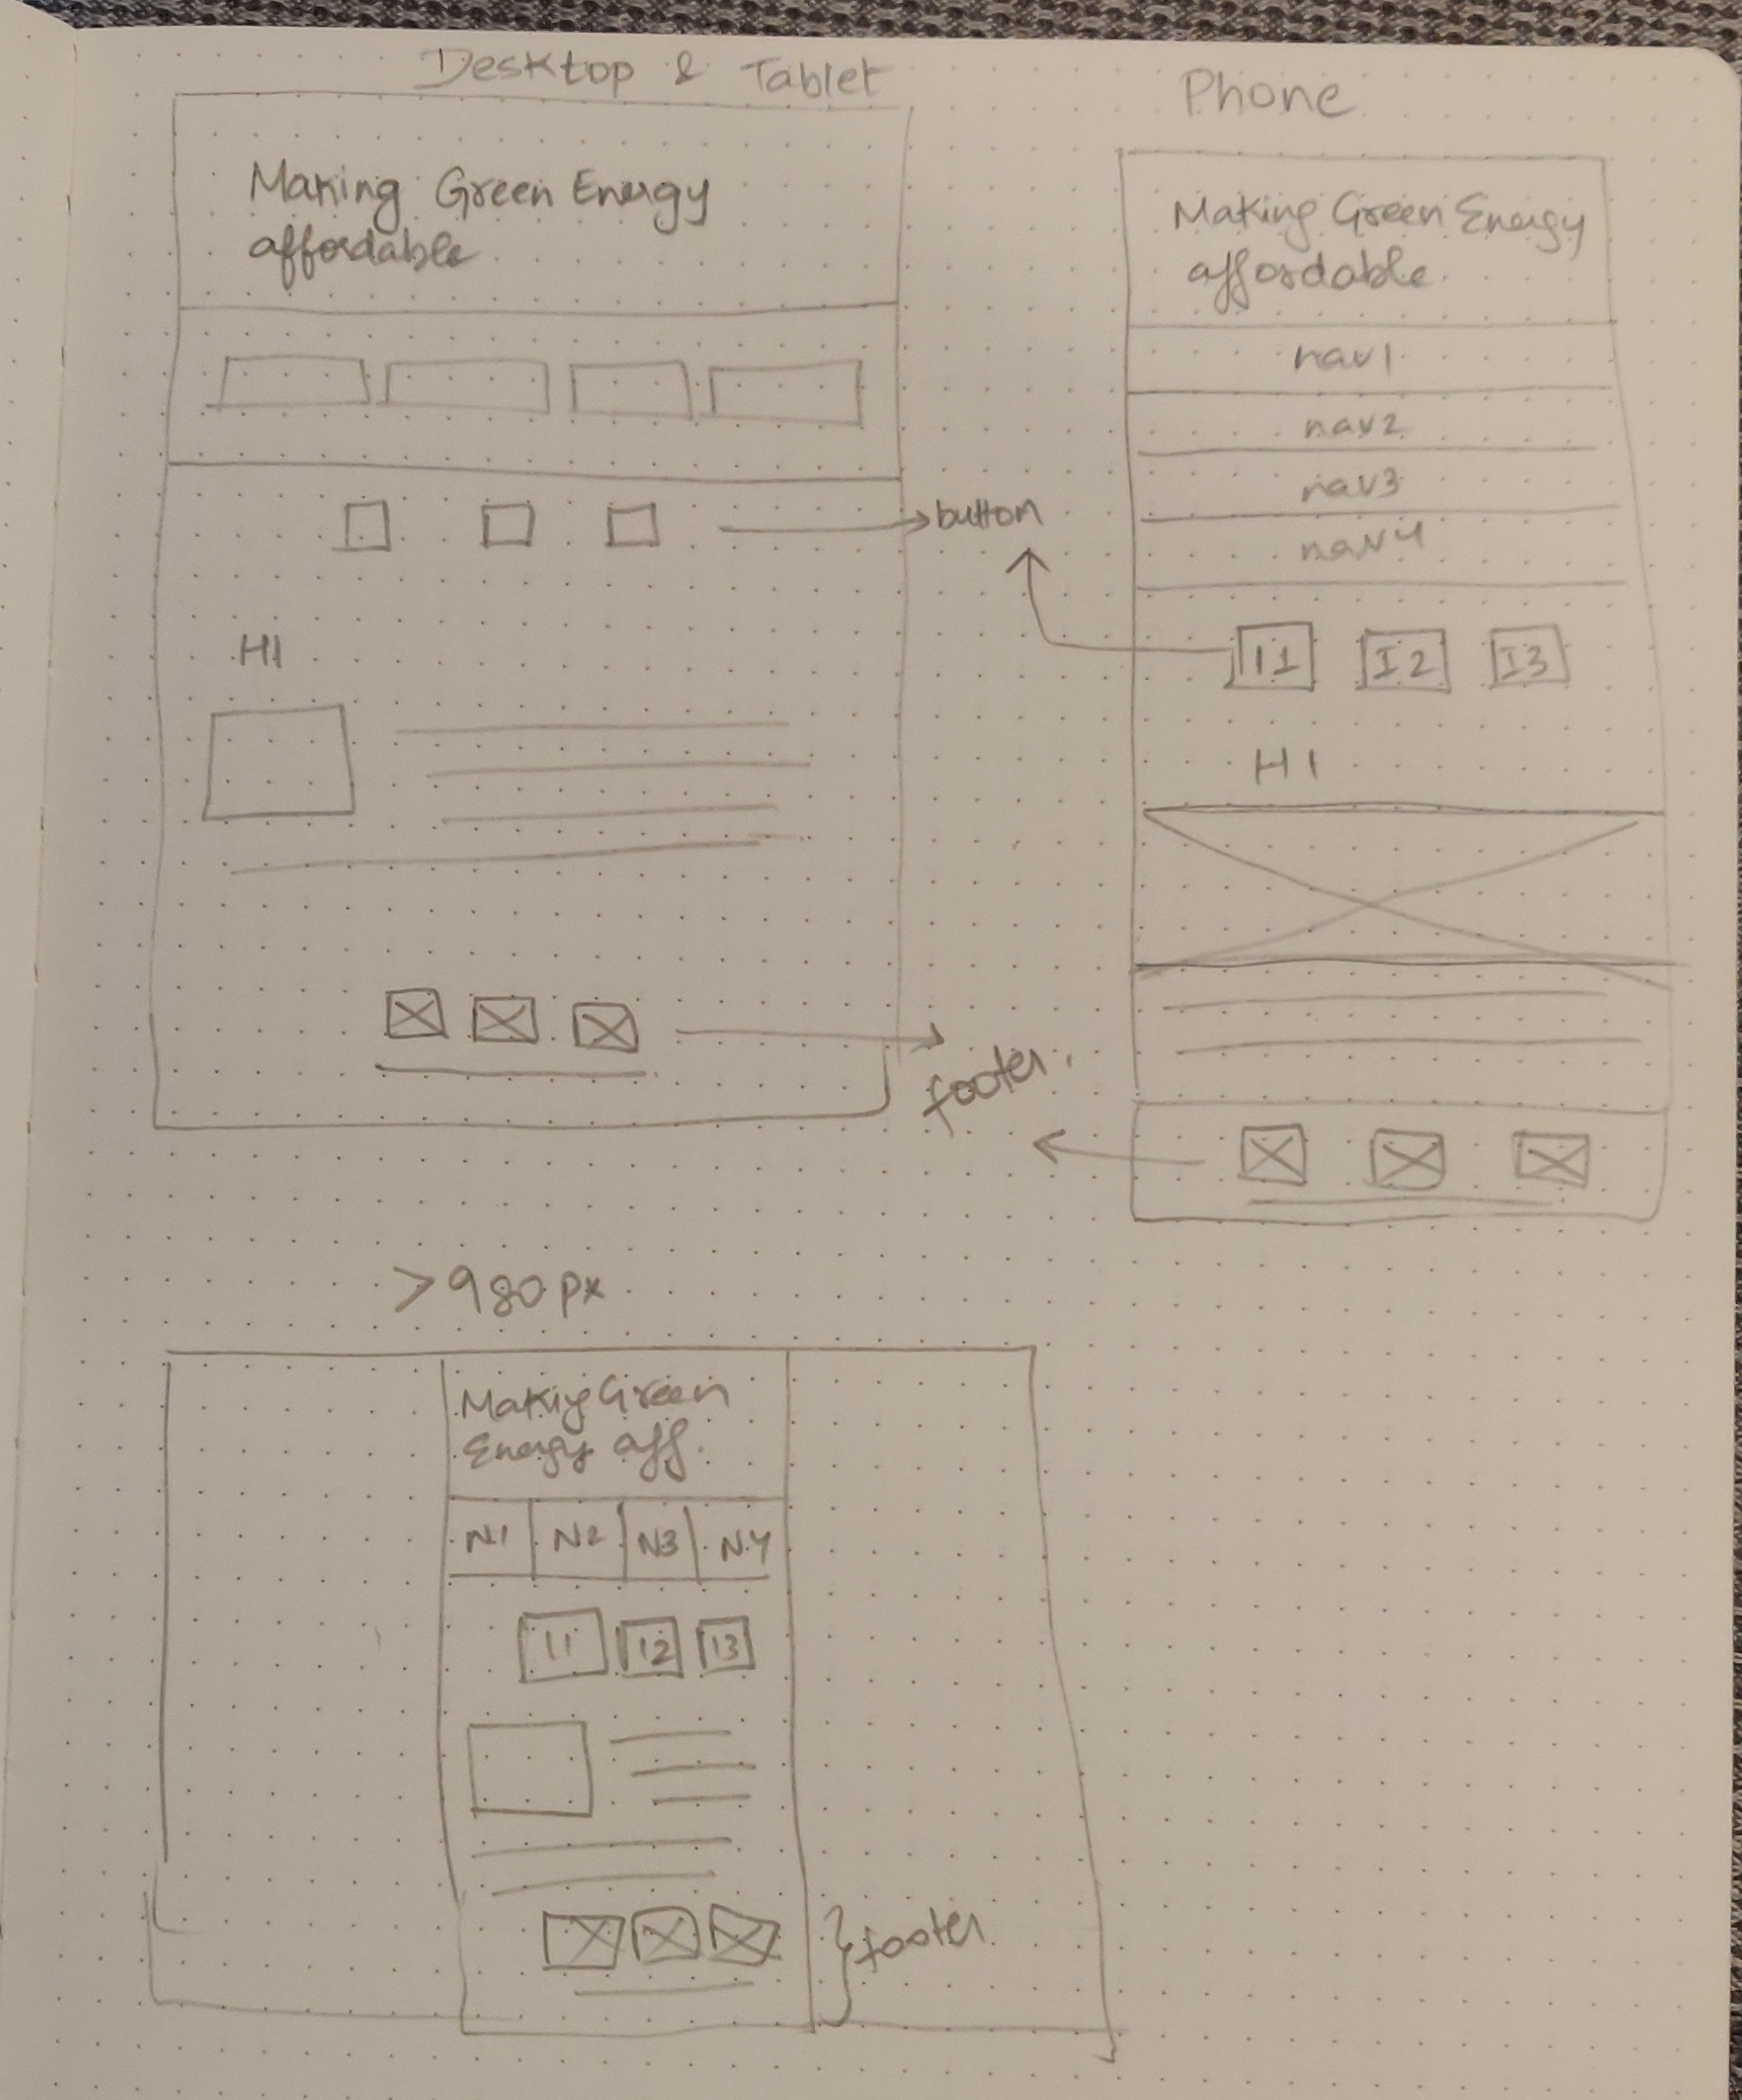 Desktop & Tablet
Making Green Energy
affordable
button
H1
footer.
Phone
Making Green Energy
affordable.
nav1
nav2
nav3
nav4
I1 I2 I3
H1
>980px
Making Green
Energy aff.
N1 N2 N3 N4
I1 I2 I3
footer